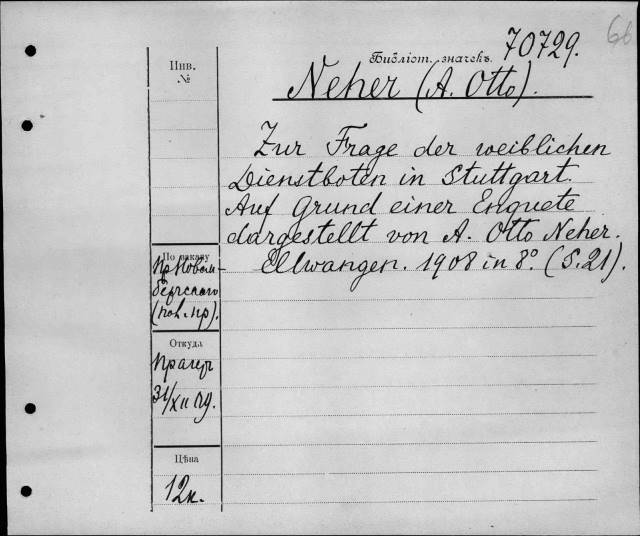 66
70729.
Библіот. значекъ.
Инв.
№
Neher (A. Otto).
Zur Frage der weiblichen
Dienstboten in Stuttgart.
Auf Grund einer Enquete
dargestellt von A. Otto Neher.
Ellwangen. 1908 in 8° (S. 21).
По заказу
Откуда
Прагеръ
31/XII 09.
Цѣна
12к.